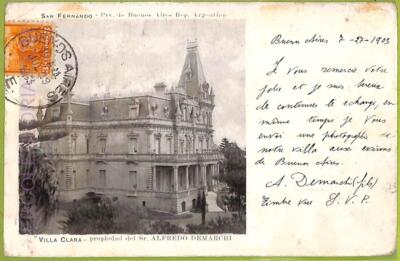 SAN FERNANDO - Prv. de Buenos Aires Rep. Argentina
BUENOS AIRES
Buenos Aires 7-27-1903
Je Vous remercie votre
jolie et je suis heureux
de continuer le echange, en
même temps je Vous
envoi une photographie de
notre villa aux environs
de Buenos Aires.
A. Demarchi (fils)
Timbre vue S.V.P.
VILLA CLARA - propiedad del Sr. ALFREDO DEMARCHI